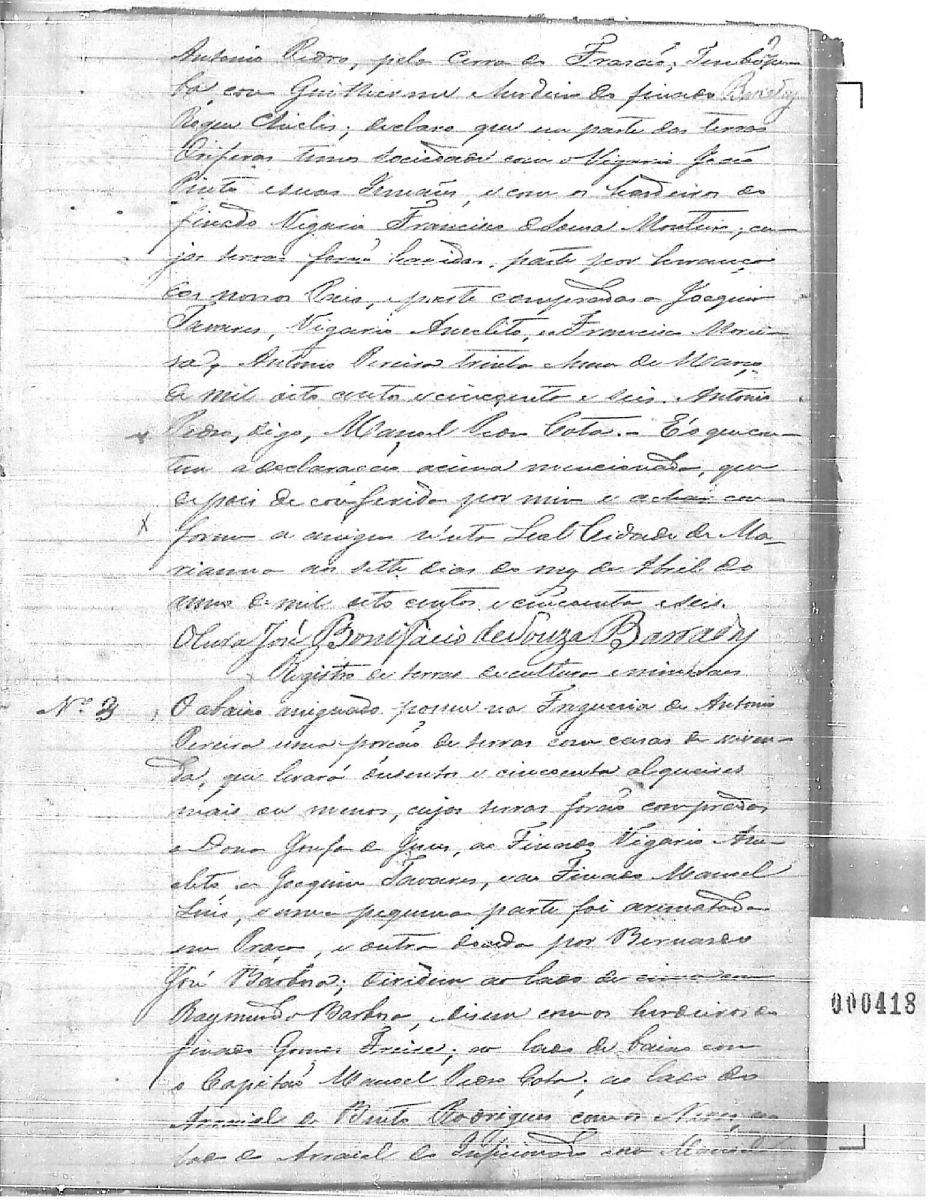 Antonio Pedro, pela Cerra do Frasão, Timbópe-
ba, com Guilherme Merdeiro do finado Barraday
Roque declaro que em parte das terras
Oriferas temos sociedade com o Vigario João
Pinto e suas Irmães, e com os herdeiros do
finado Vigario Francisco de Souza Monteiro, cu-
jas terras forão havidas, parte por herança
dos nossos Pais, e parte compradas a Joaquim
Tavares, Vigario Anecleto, e Francisco Morei-
ra, Antonio Pereira trinta e hum de Março
de mil oito centos e cincoenta e seis. Antonio
Pedro, digo, Manoel Pedro Cota. - É o que con-
tem a declaração acima mencionada, que
depois de conferida por mim e achar con-
forme a assigno n'esta Leal Cidade de Ma-
rianna aos sette dias do mez de Abril do
anno de mil oito centos e cincoenta e seis.
José Bonifacio de Souza Barraday
Registro de terras de cultura e mineraes
Nº 3 O abaixo assignado possue na Freguezia de Antonio
Pereira uma porção de terras com casas de viven-
da, que levará dusentos e cincoenta alqueires
mais ou menos, cujas terras forão compradas
a Dona Josefa de Jesus, ao Finado Vigario Ane-
cleto, a Joaquim Tavares, e ao Finado Manoel
Luis, e uma pequena parte foi arrematada
em Praça, e outra doada por Bernardo
José Barbosa; dividem ao lado de cima com
Raymundo Barbosa, com os herdeiros do
finado Gomes Freire; ao lado de baixo com
o Capitão Manoel Pedro Cota; ao lado do
Arraial de Bento Rodrigues com os Neves, ao
lado do Arraial do Inficionado
000418